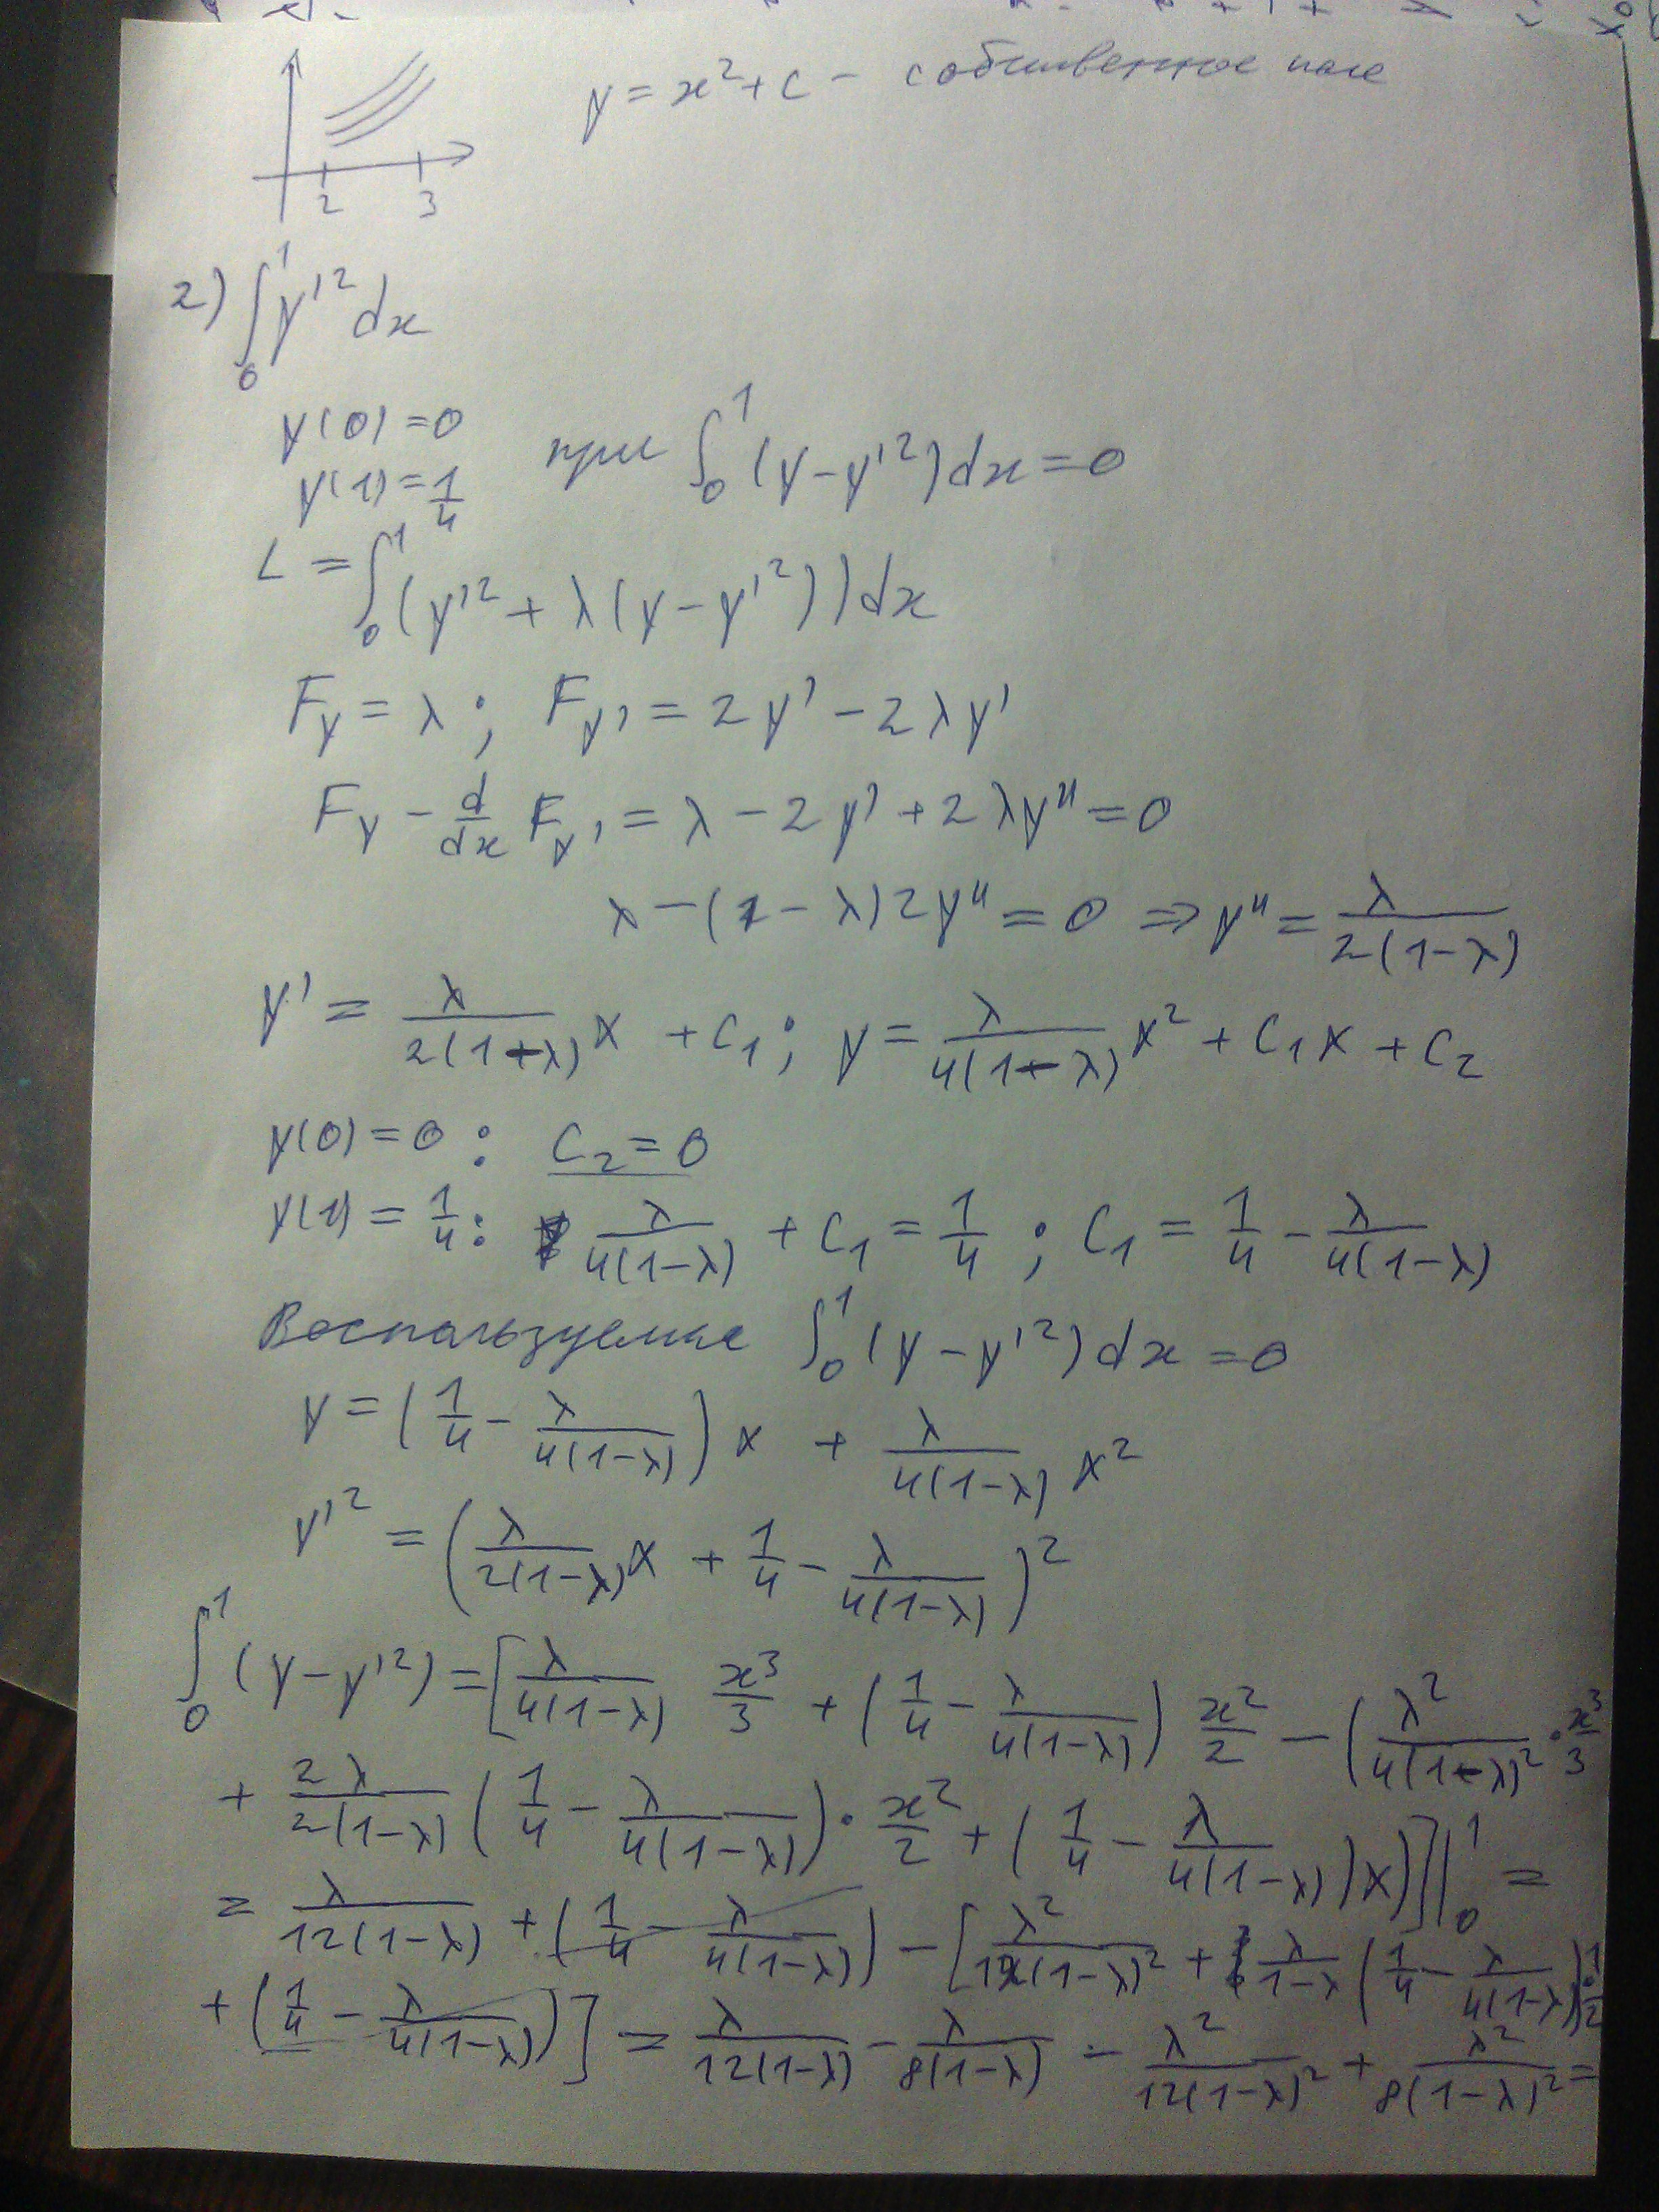 y = x² + c - собственное поле
2 3
2) ∫₀¹ y'² dx
y(0) = 0
y(1) = 1/4 при ∫₀¹ (y - y'²) dx = 0
L = ∫₀¹ (y'² + λ(y - y'²)) dx
F_y = λ ; F_y' = 2y' - 2λy'
F_y - d/dx F_y' = λ - 2y' + 2λy'' = 0
λ - (1 - λ)2y'' = 0 ⇒ y'' = λ/(2(1-λ))
y' = λ/(2(1-λ)) x + C₁ ; y = λ/(4(1-λ)) x² + C₁x + C₂
y(0) = 0 : C₂ = 0
y(1) = 1/4 : λ/(4(1-λ)) + C₁ = 1/4 ; C₁ = 1/4 - λ/(4(1-λ))
Воспользуемся ∫₀¹ (y - y'²) dx = 0
y = (1/4 - λ/(4(1-λ))) x + λ/(4(1-λ)) x²
y'² = (λ/(2(1-λ)) x + 1/4 - λ/(4(1-λ)))²
∫₀¹ (y - y'²) = [λ/(4(1-λ)) x³/3 + (1/4 - λ/(4(1-λ))) x²/2 - (λ²/(4(1-λ)²) · x³/3
+ 2λ/(2(1-λ)) (1/4 - λ/(4(1-λ))) · x²/2 + (1/4 - λ/(4(1-λ))) x)]|₀¹ =
= λ/(12(1-λ)) + (1/4 - λ/(4(1-λ))) - [λ²/(12(1-λ)²) + λ/(1-λ) (1/4 - λ/(4(1-λ))) · 1/2
+ (1/4 - λ/(4(1-λ)))] = λ/(12(1-λ)) - λ/(8(1-λ)) - λ²/(12(1-λ)²) + λ²/(8(1-λ)²) =